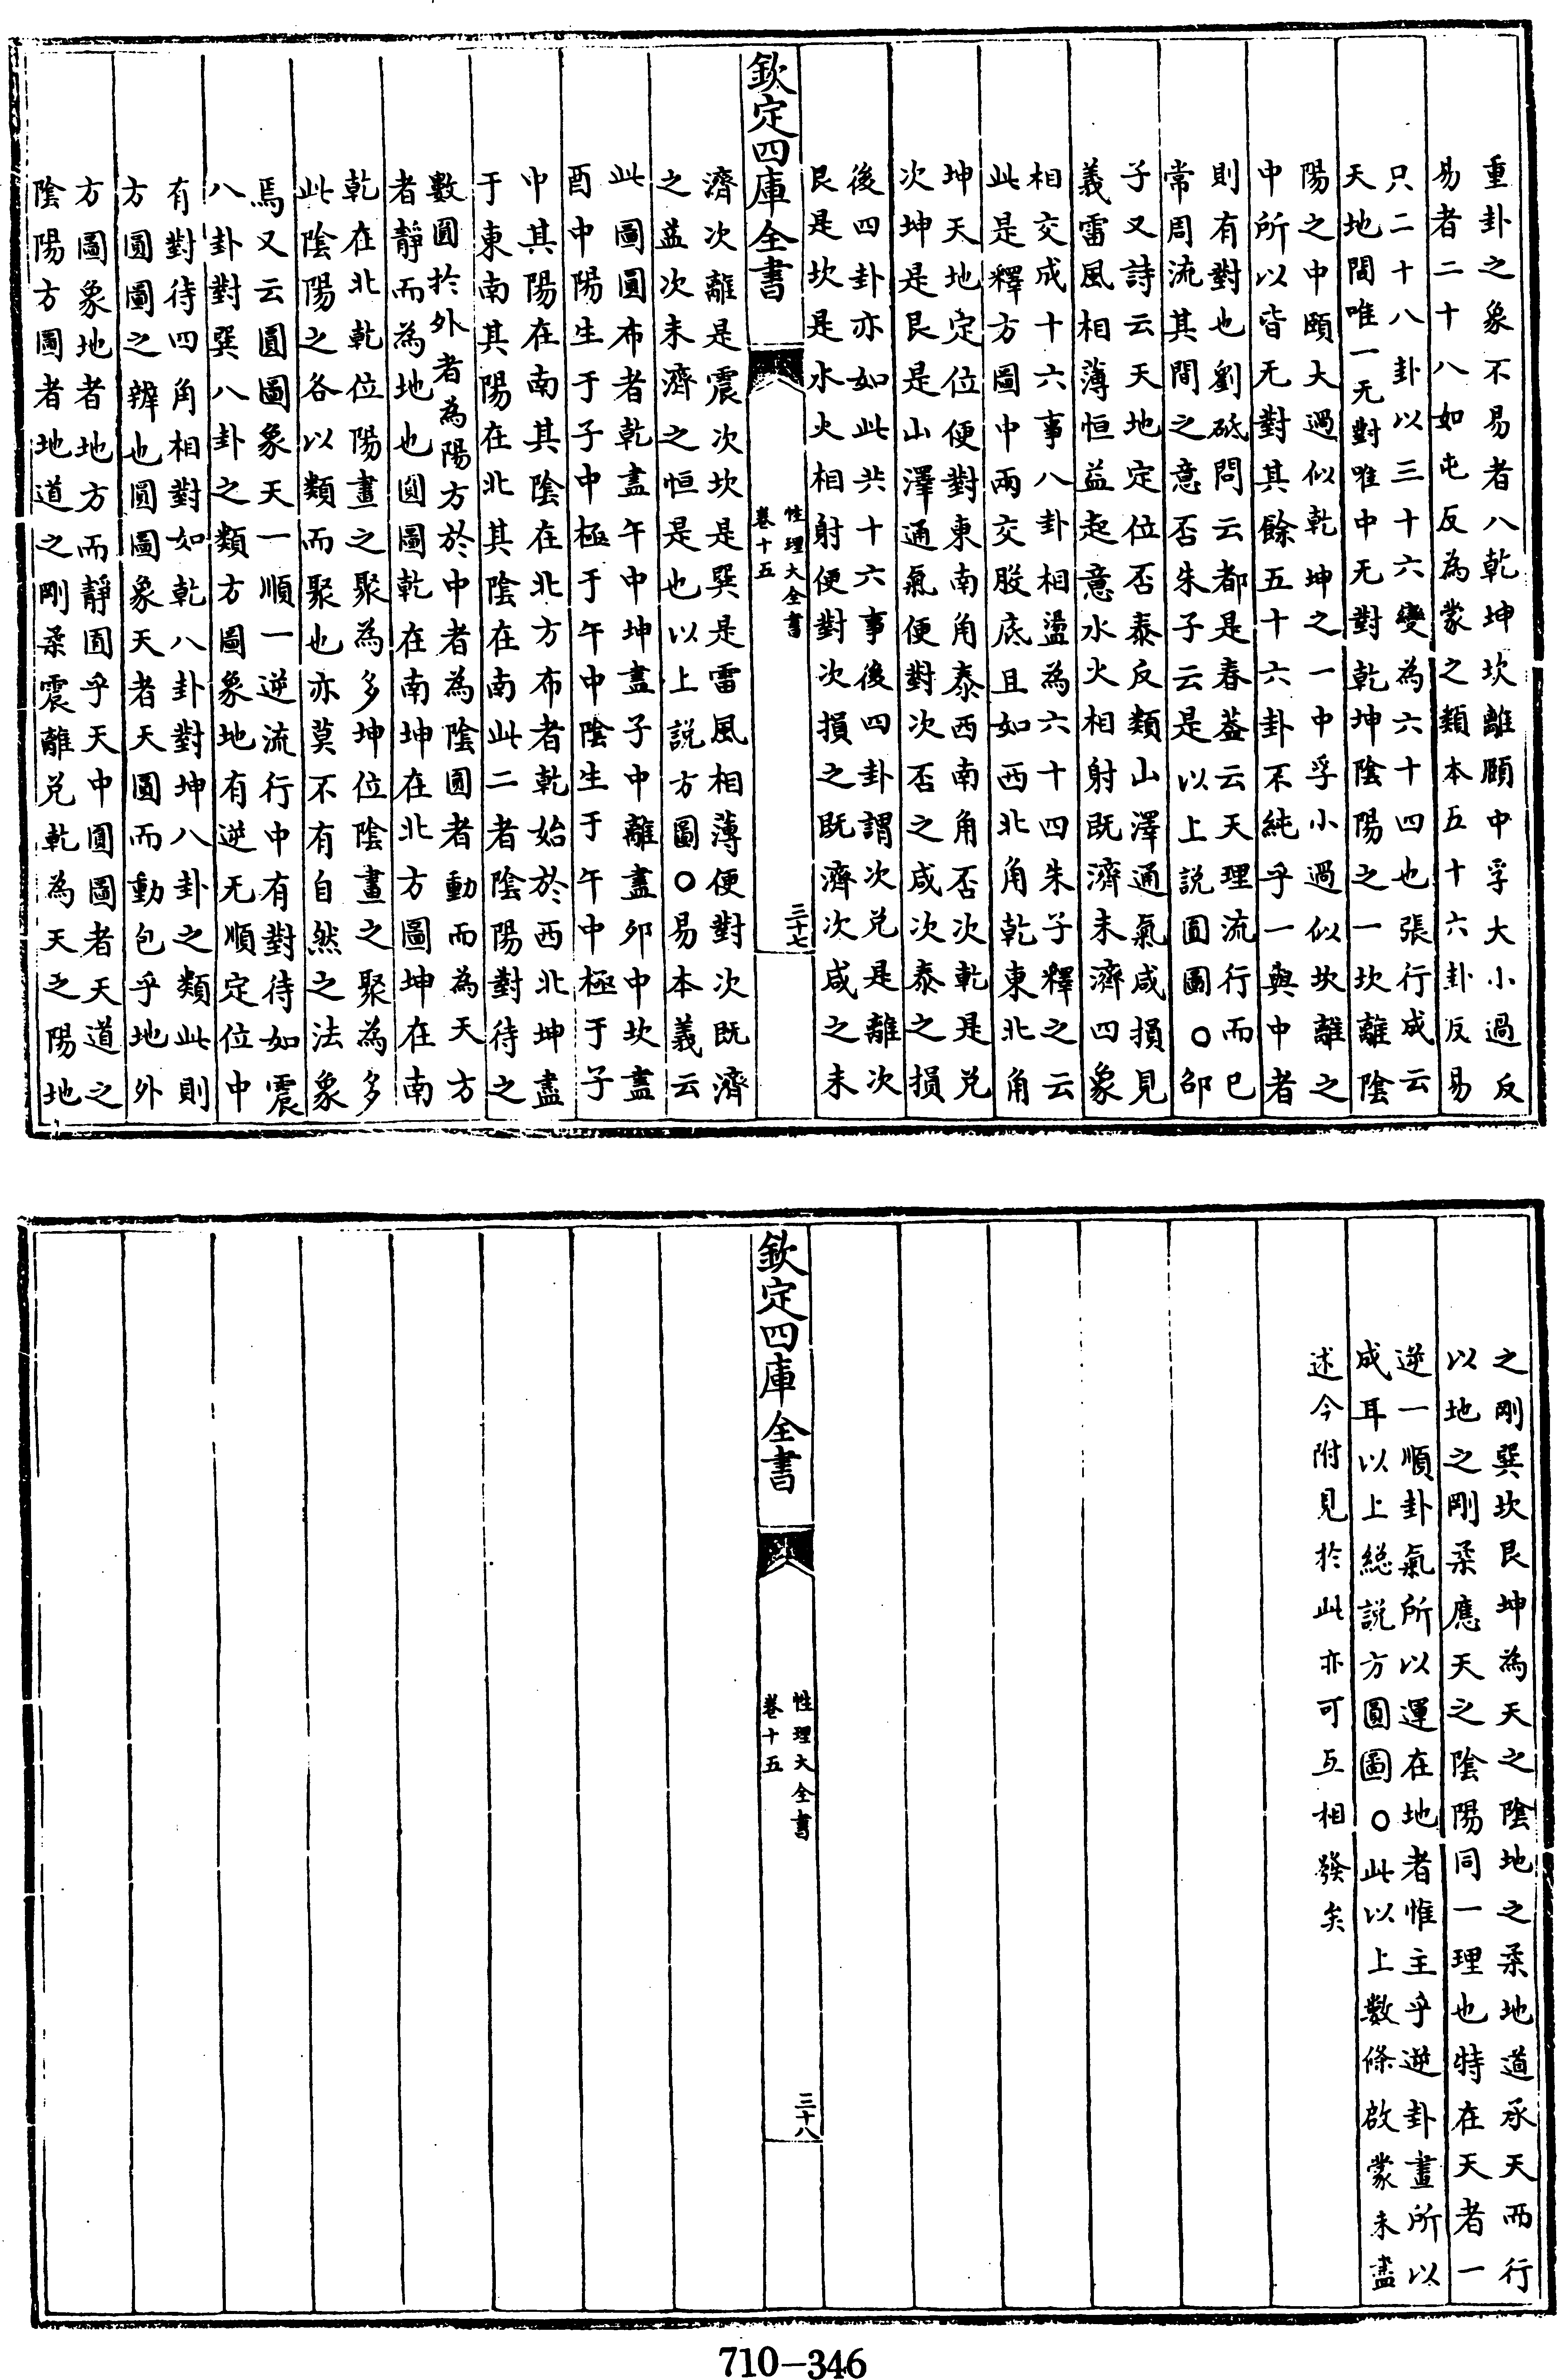 重卦之象不易者八乾坤坎離頤中孚大小過反
易者二十八如屯反為蒙之類本五十六卦反易
只二十八卦以三十六變為六十四也張行成云
天地間唯一无對唯中无對乾坤陰陽之一坎離陰
陽之中頤大過似乾坤之一中孚小過似坎離之
中所以皆无對其餘五十六卦不純乎一與中者
則有對也劉砥問云都是春蓋云天理流行而已
常周流其間之意否朱子云是以上説圓圖○邵
子又詩云天地定位否泰反類山澤通氣咸損見
義雷風相薄恒益起意水火相射既濟未濟四象
相交成十六事八卦相盪為六十四朱子釋之云
此是釋方圖中兩交股底且如西北角乾東北角
坤天地定位便對東南角泰西南角否次乾是兑
次坤是艮是山澤通氣便對次否之咸次泰之損
後四卦亦如此共十六事後四卦謂次兑是離次
艮是坎是水火相射便對次損之既濟次咸之未
欽定四庫全書
性理大全書
卷十五
三十七
濟次離是震次坎是巽是雷風相薄便對次既濟
之益次未濟之恒是也以上説方圖○易本義云
此圖圓布者乾盡午中坤盡子中離盡卯中坎盡
酉中陽生于子中極于午中陰生于午中極于子
中其陽在南其陰在北方布者乾始於西北坤盡
于東南其陽在北其陰在南此二者陰陽對待之
數圓於外者為陽方於中者為陰圓者動而為天方
者靜而為地也圓圖乾在南坤在北方圖坤在南
乾在北乾位陽畫之聚為多坤位陰畫之聚為多
此陰陽之各以類而聚也亦莫不有自然之法象
焉又云圓圖象天一順一逆流行中有對待如震
八卦對巽八卦之類方圖象地有逆无順定位中
有對待四角相對如乾八卦對坤八卦之類此則
方圓圖之辨也圓圖象天者天圓而動包乎地外
方圖象地者地方而靜囿乎天中圓圖者天道之
陰陽方圖者地道之剛柔震離兑乾為天之陽地
之剛巽坎艮坤為天之陰地之柔地道承天而行
以地之剛柔應天之陰陽同一理也特在天者一
逆一順卦氣所以運在地者惟主乎逆卦畫所以
成耳以上総説方圓圖○此以上數條啟蒙未盡
述今附見於此亦可互相發矣
欽定四庫全書
性理大全書
卷十五
三十八
710-346